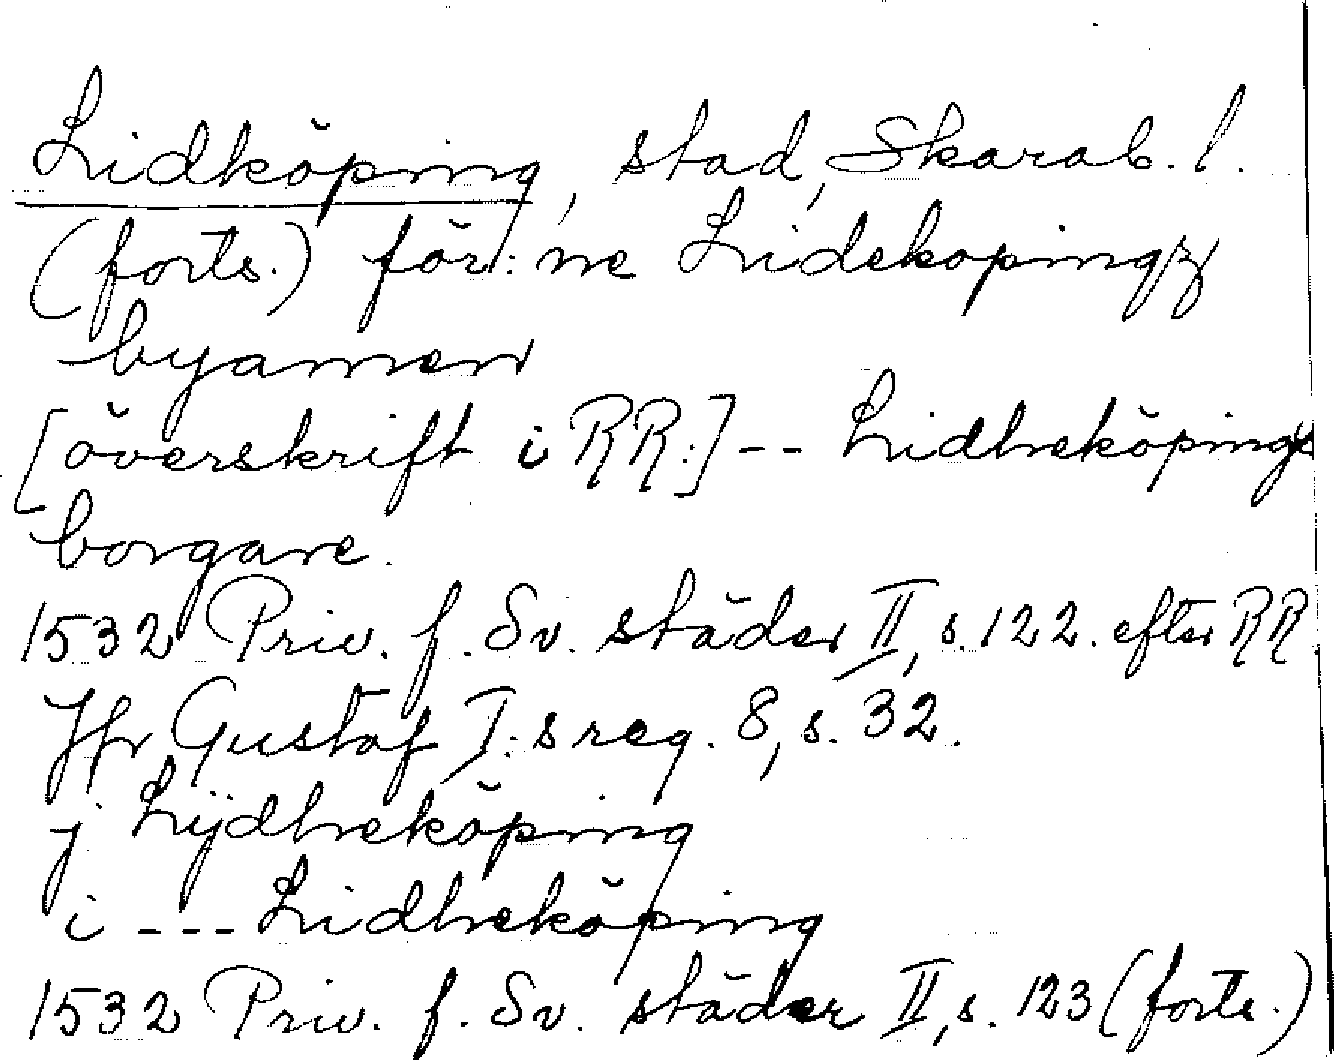 Lidköping, stad, Skarab. l.
(forts.) för: ne Lidekopingz
byamen
[överskrift i RR:] -- Lidheköpings
borgare.
1532 Priv. f. Sv. städer II, s. 122. efter RR
Jfr Gustaf I:s reg. 8, s. 32.
j Lijdheköping
i --- Lidheköping
1532 Priv. f. Sv. städer II, s. 123 (forts.)